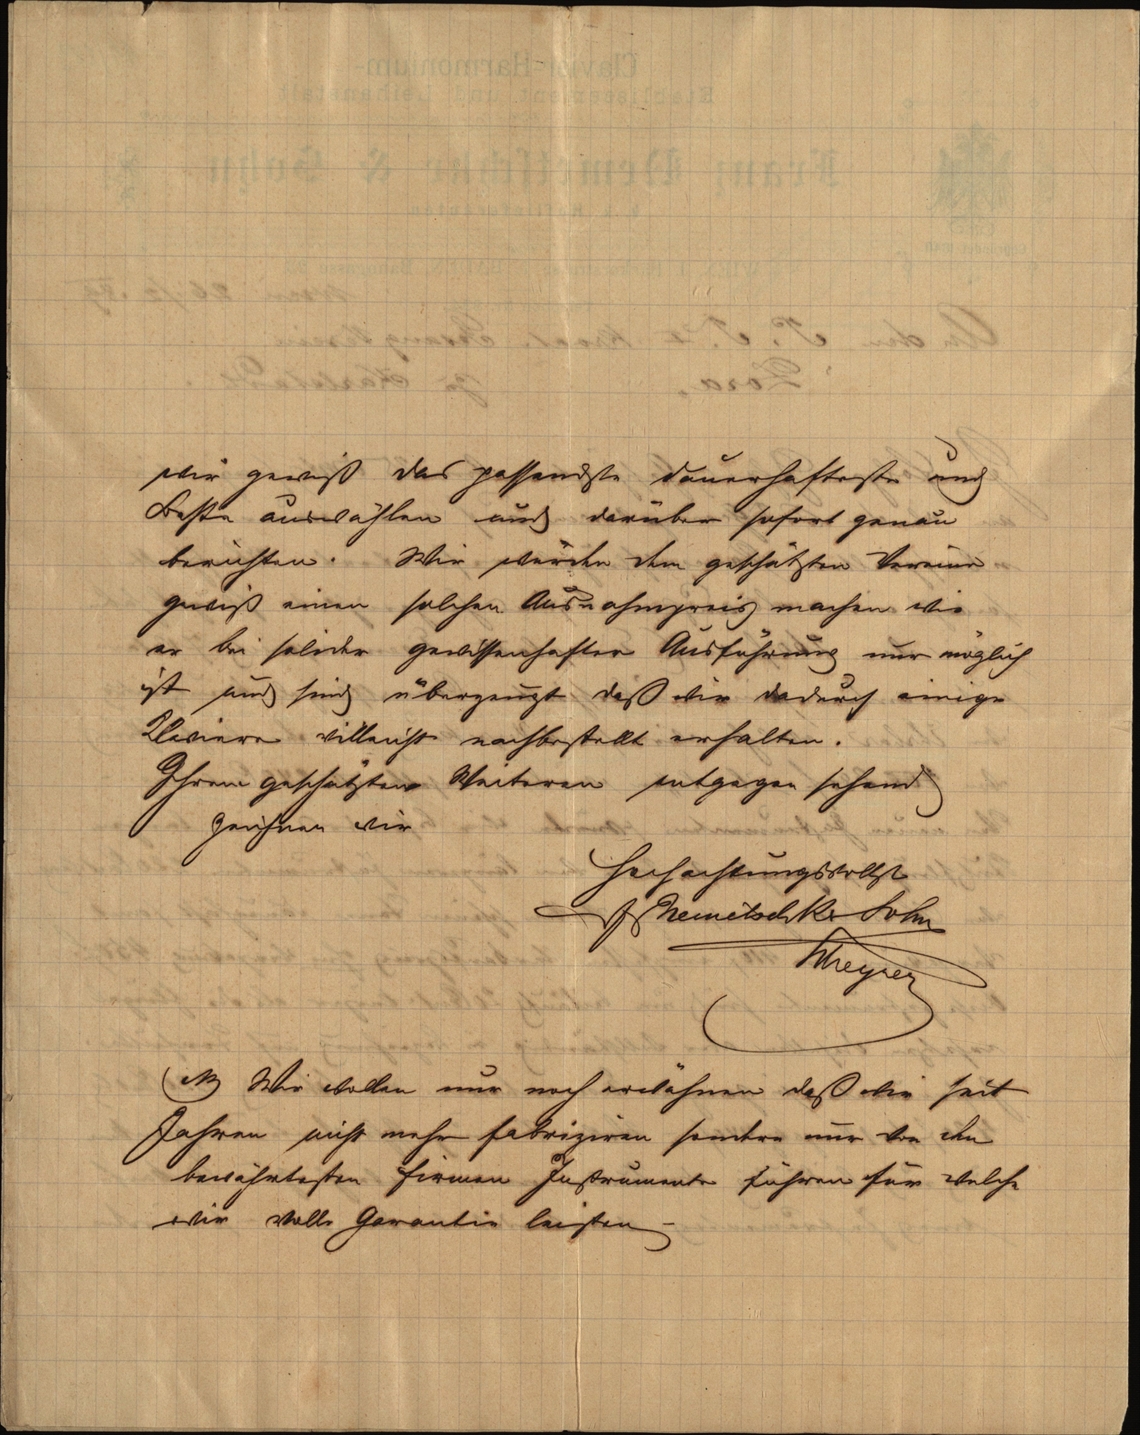 wir gewiß das passendste dauerhafteste und
Beste auswählen und darüber sofort genau
berichten. Wir werden dem geschätzten Vereine
gewiß einen solchen Ausnahmspreis machen wie
er bei solider gewissenhafter Ausführung nur möglich
ist und sind überzeugt daß wir dadurch einige
Claviere villeicht nachbestellt erhalten.
Ihrem geschätzten Weiteren entgegen sehend
zeichnen wir
Hochachtungsvollst
F Nemetschke Sohn
NB Wir wollen nur noch erwähnen daß wir seit
Jahren nicht mehr fabriziren sondern nur von den
bewährtesten Firmen Instrumente führen für welche
wir volle Garantie leisten –